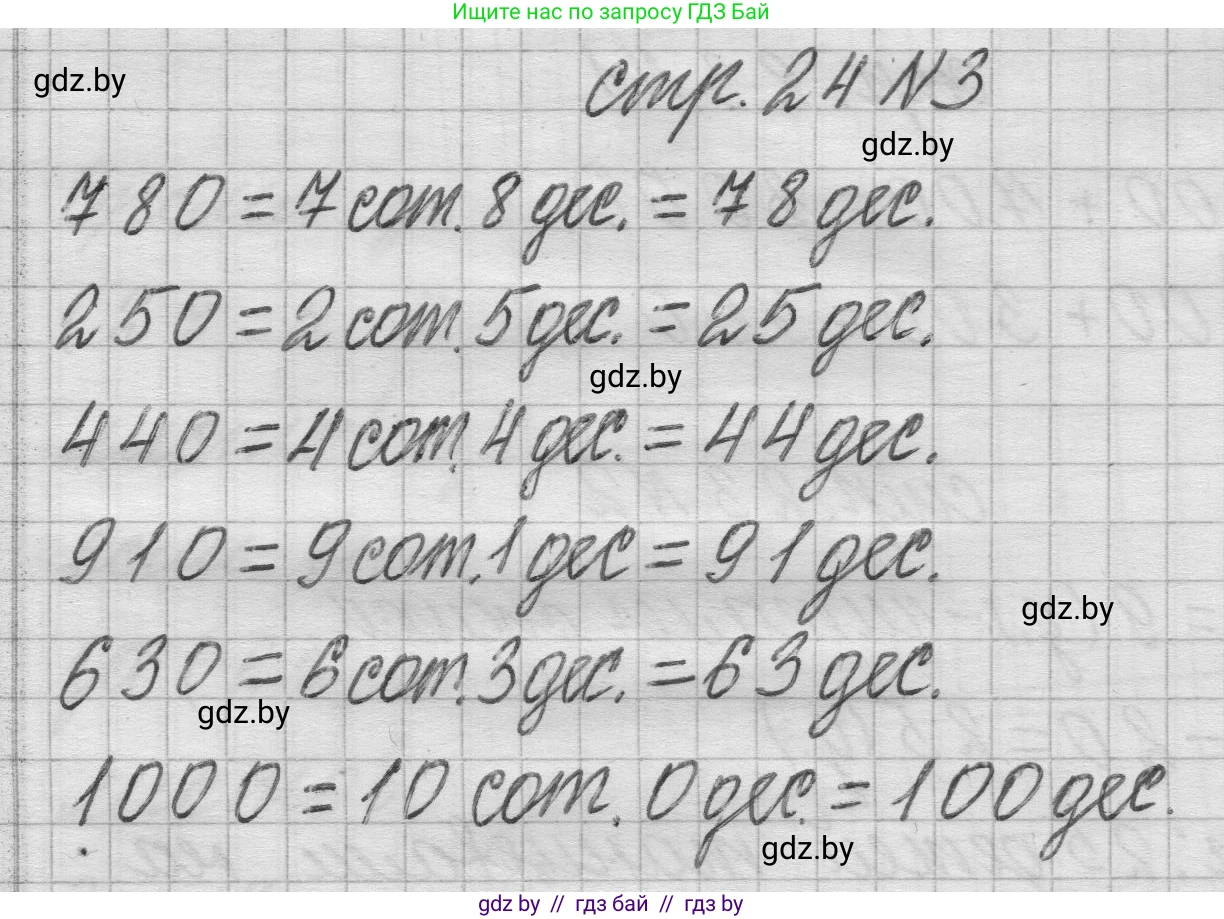 Ищите нас по запросу ГДЗ Бай
gdz.by
стр. 24 N3
gdz.by
780 = 7 сот. 8 дес. = 78 дес.
250 = 2 сот. 5 дес. = 25 дес.
gdz.by
440 = 4 сот. 4 дес. = 44 дес.
910 = 9 сот. 1 дес = 91 дес.
gdz.by
630 = 6 сот. 3 дес. = 63 дес.
gdz.by
1000 = 10 сот. 0 дес. = 100 дес.
gdz.by
gdz by // гдз бай // гдз by